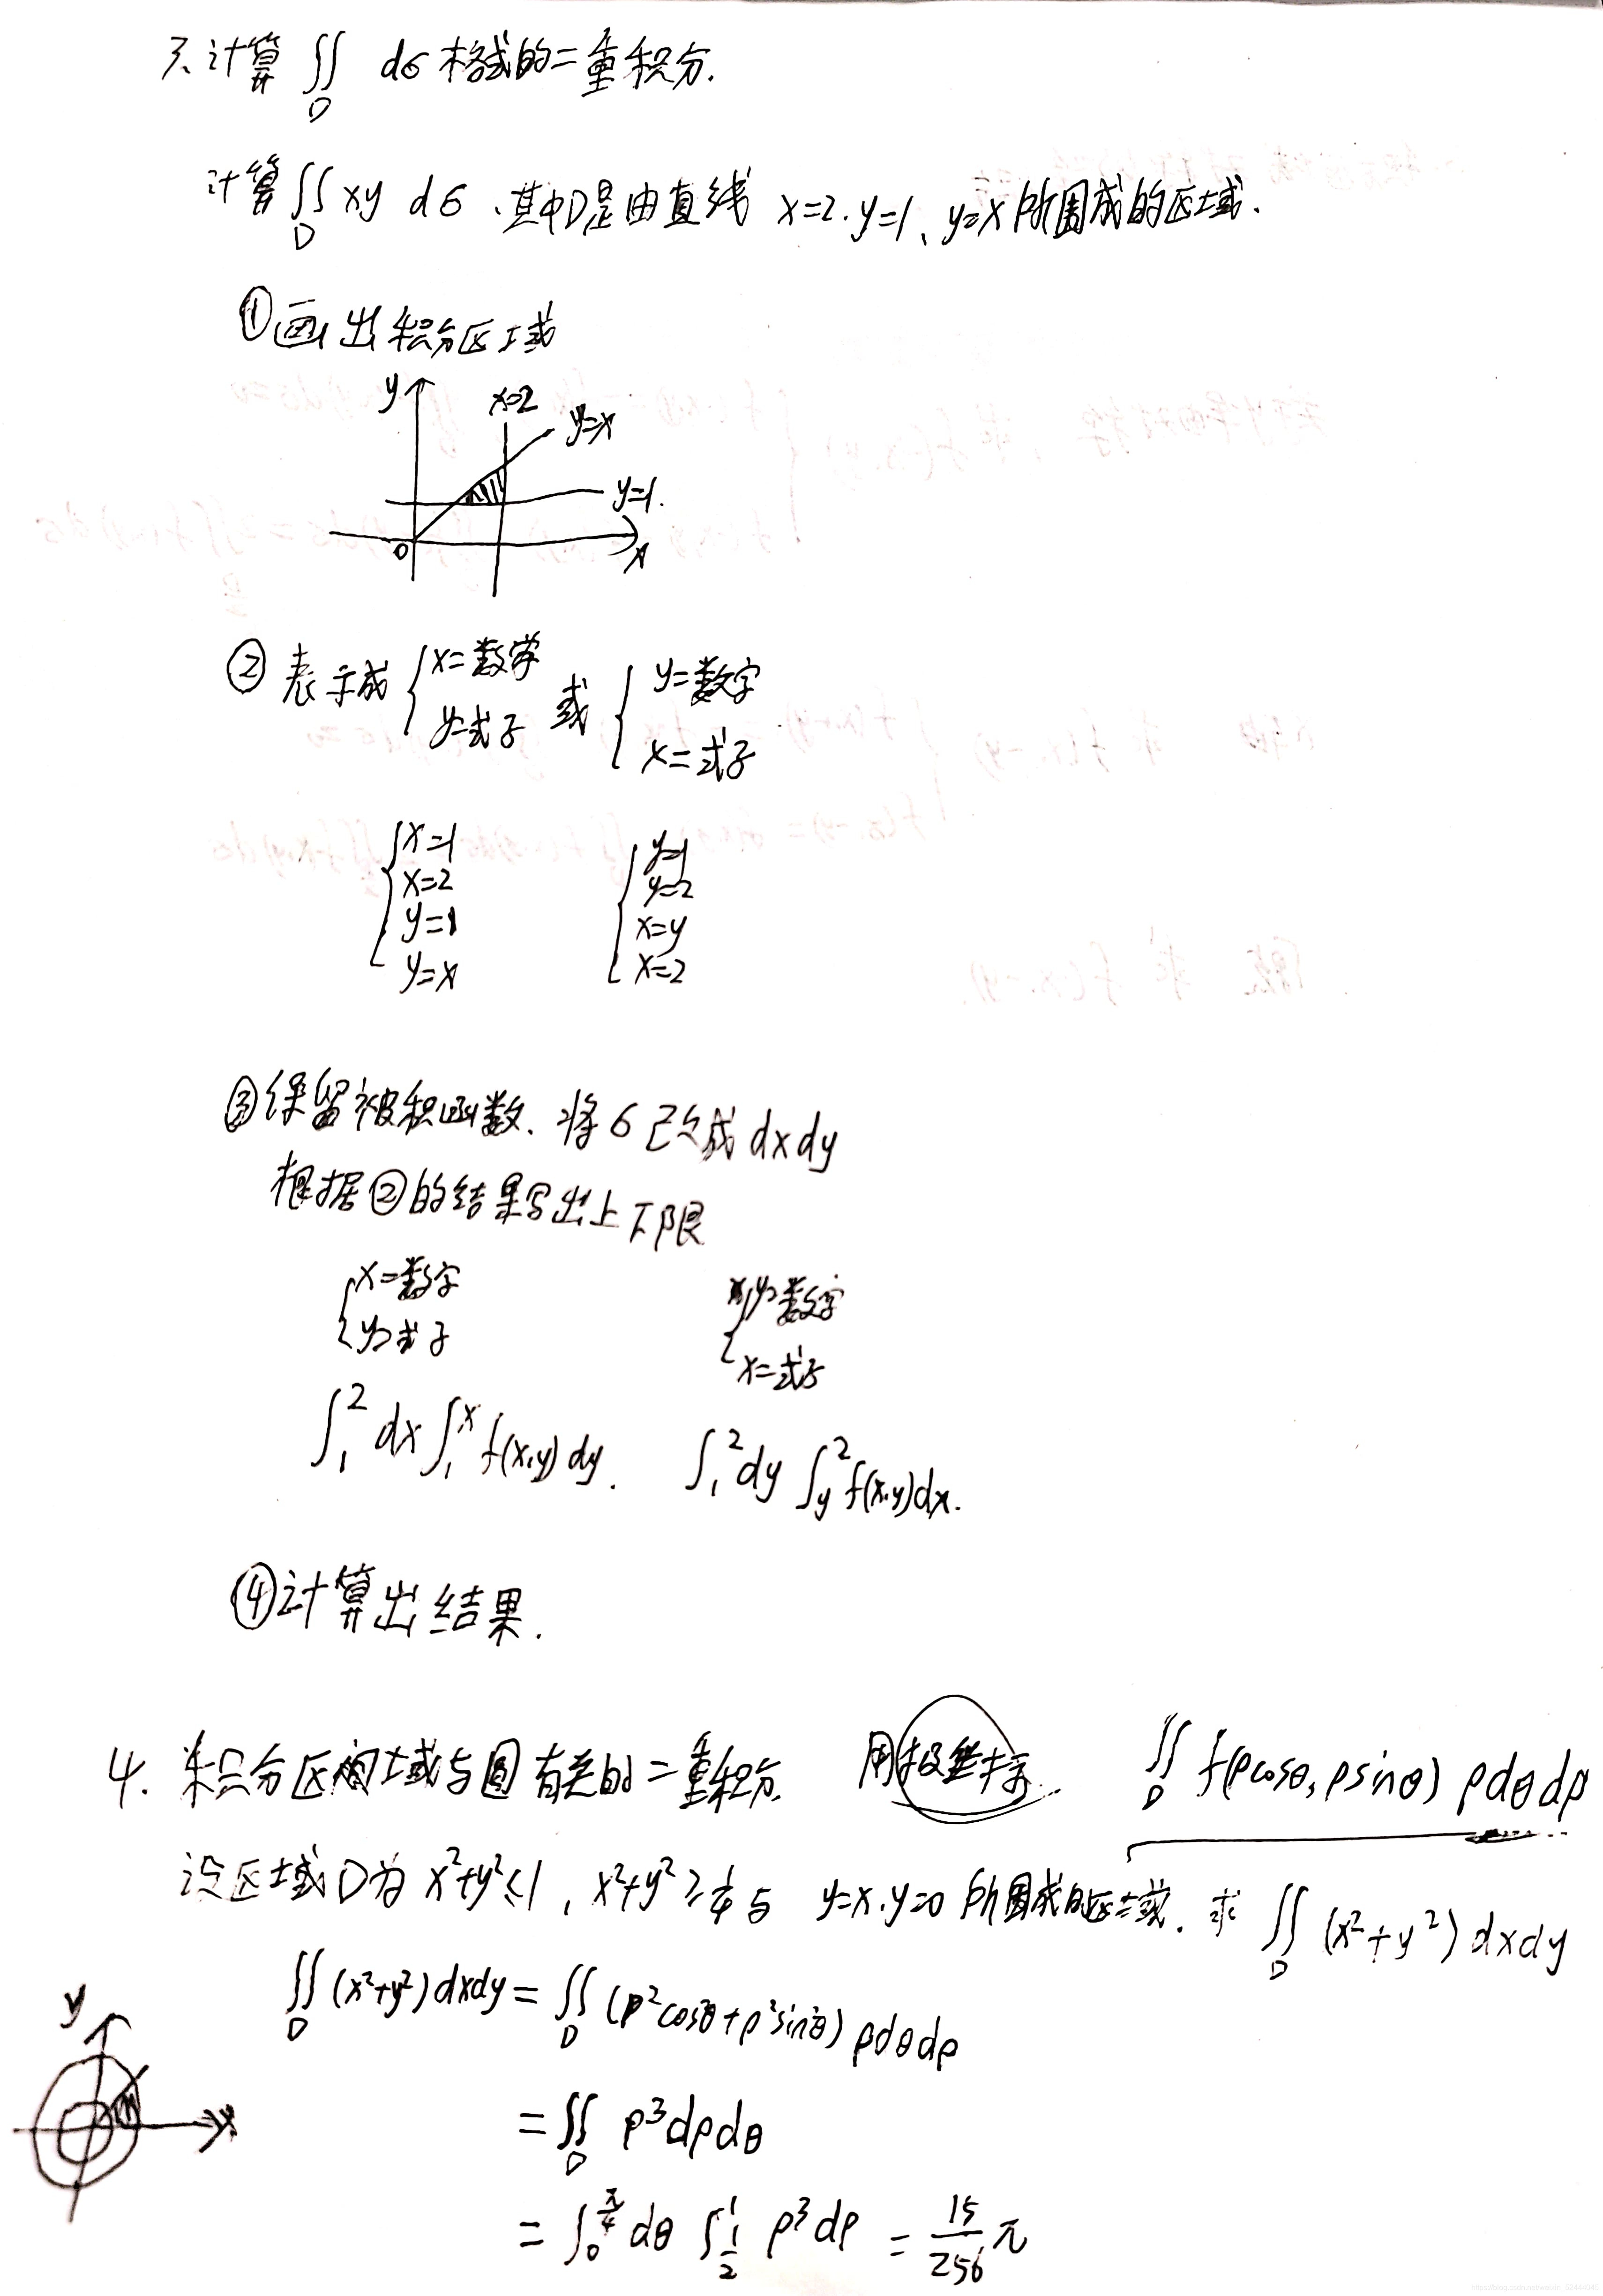 3、计算∬ dσ格式的二重积分.
D
计算∬ xy dσ、其中D是由直线 x=2.y=1、y=x所围成的区域.
D
①画出积分区域
y x=2 y=x
y=1.
0 x
②表示成 { x=数字 y=式子 或 { y=数字 x=式子
x=1 y=1
x=2 y=2
y=1 x=y
y=x x=2
③保留被积函数、将σ改成dxdy
根据②的结果写出上下限
{ x=数字 { y=数字
y=式子 x=式子
∫₁² dx ∫₁ˣ f(x,y) dy. ∫₁² dy ∫ᵧ² f(x,y)dx.
④计算出结果.
4. 积分区域与圆有关的二重积分. 用极坐标系. ∬ f(ρcosθ, ρsinθ) ρdθdρ
D
设区域D为 x²+y²≤1, x²+y²≥1/4 与 y=x.y=0 所围成的区域. 求 ∬ (x²+y²) dxdy
D
∬ (x²+y²)dxdy = ∬ (ρ²cos²θ+ρ²sin²θ) ρdθdρ
D D
y
x
= ∬ ρ³dρdθ
D
= ∫₀^(π/4) dθ ∫_(1/2)^1 ρ³dρ = 15/256 π